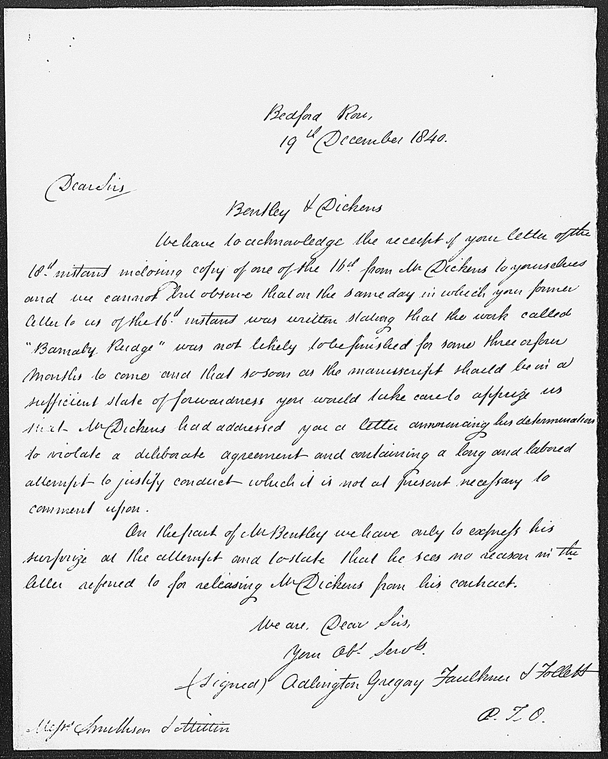 Bedford Row,
19th December 1840.
Dear Sirs
Bentley & Dickens
We have to acknowledge the receipt of your letter of the
18th instant inclosing copy of one of the 16th from Mr Dickens to yourselves
and we cannot but observe that on the same day in which your former
letter to us of the 16th instant was written stating that the work called
"Barnaby Rudge" was not likely to be finished for some three or four
months to come and that so soon as the manuscript should be in a
sufficient state of forwardness you would take care to apprize us
that Mr Dickens had addressed you a letter announcing his determination
to violate a deliberate agreement and containing a long and labored
attempt to justify conduct which it is not at present necessary to
comment upon.
On the part of Mr Bentley we have only to express his
surprize at the attempt and to state that he sees no reason in the
letter referred to for releasing Mr Dickens from his contract.
We are, Dear Sirs,
Your Obt. Servts.
(Signed) Adlington Gregory Faulkner & Follett
P.T.O.
Messrs Smithson & Mitton